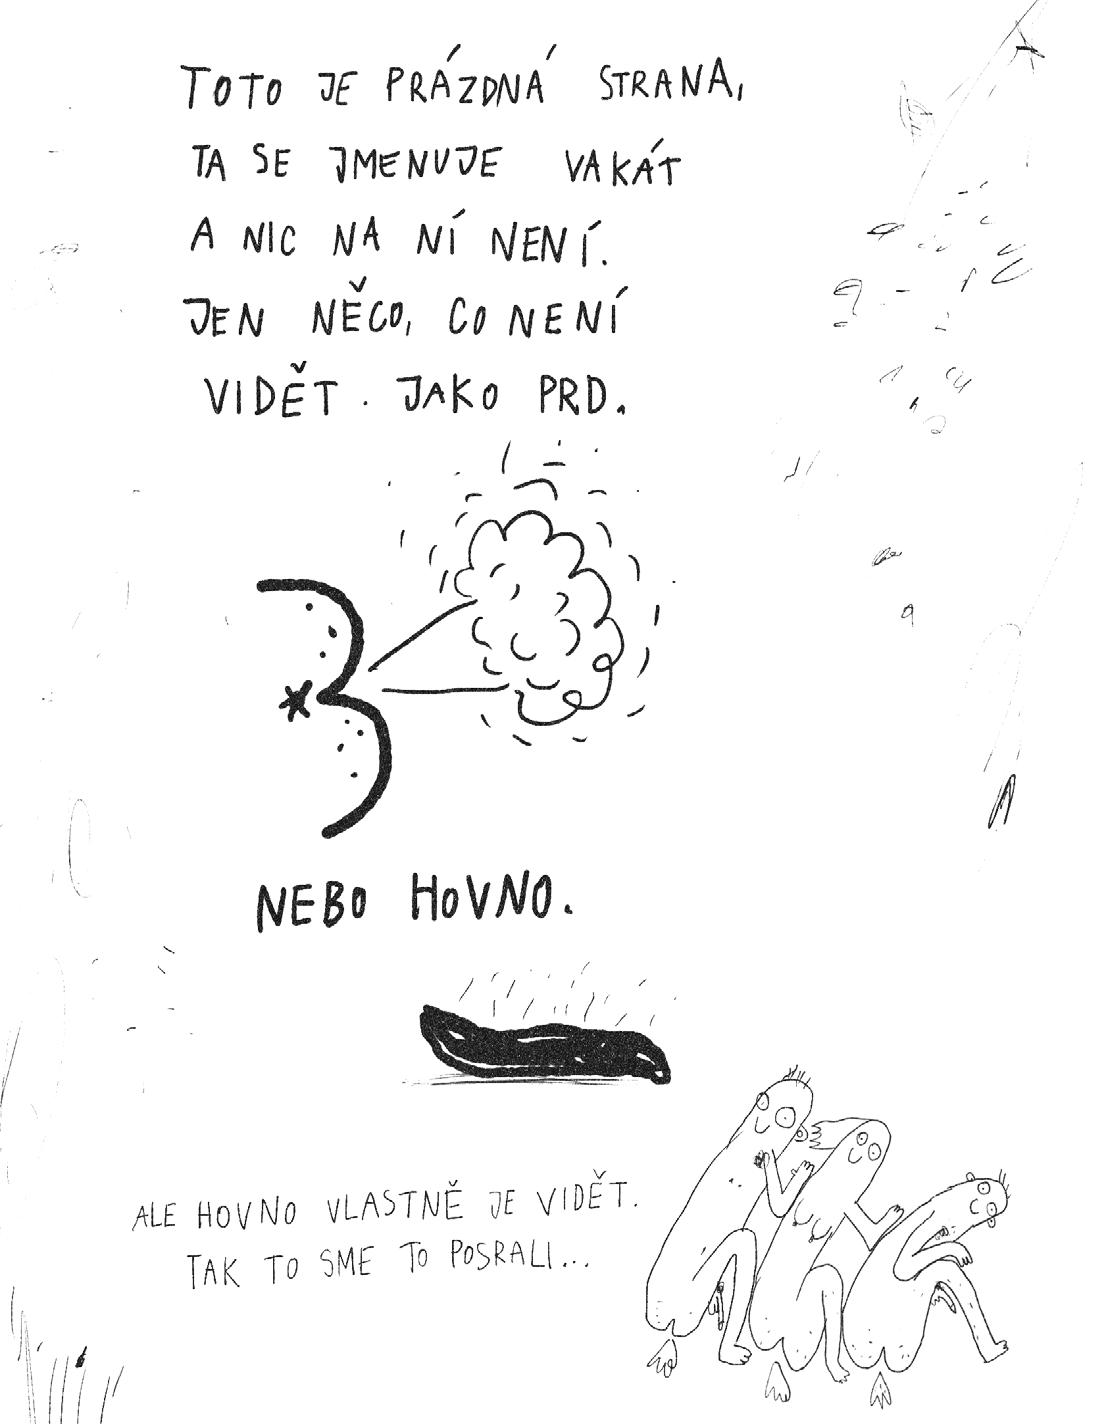 TOTO JE PRÁZDNÁ STRANA,
TA SE JMENUJE VAKÁT
A NIC NA NÍ NENÍ.
JEN NĚCO, CO NENÍ
VIDĚT. JAKO PRD.
NEBO HOVNO.
ALE HOVNO VLASTNĚ JE VIDĚT.
TAK TO SME TO POSRALI...